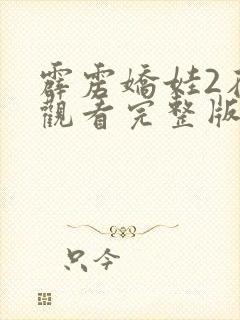 霹雳嬌娃2
觀看完整版
只今